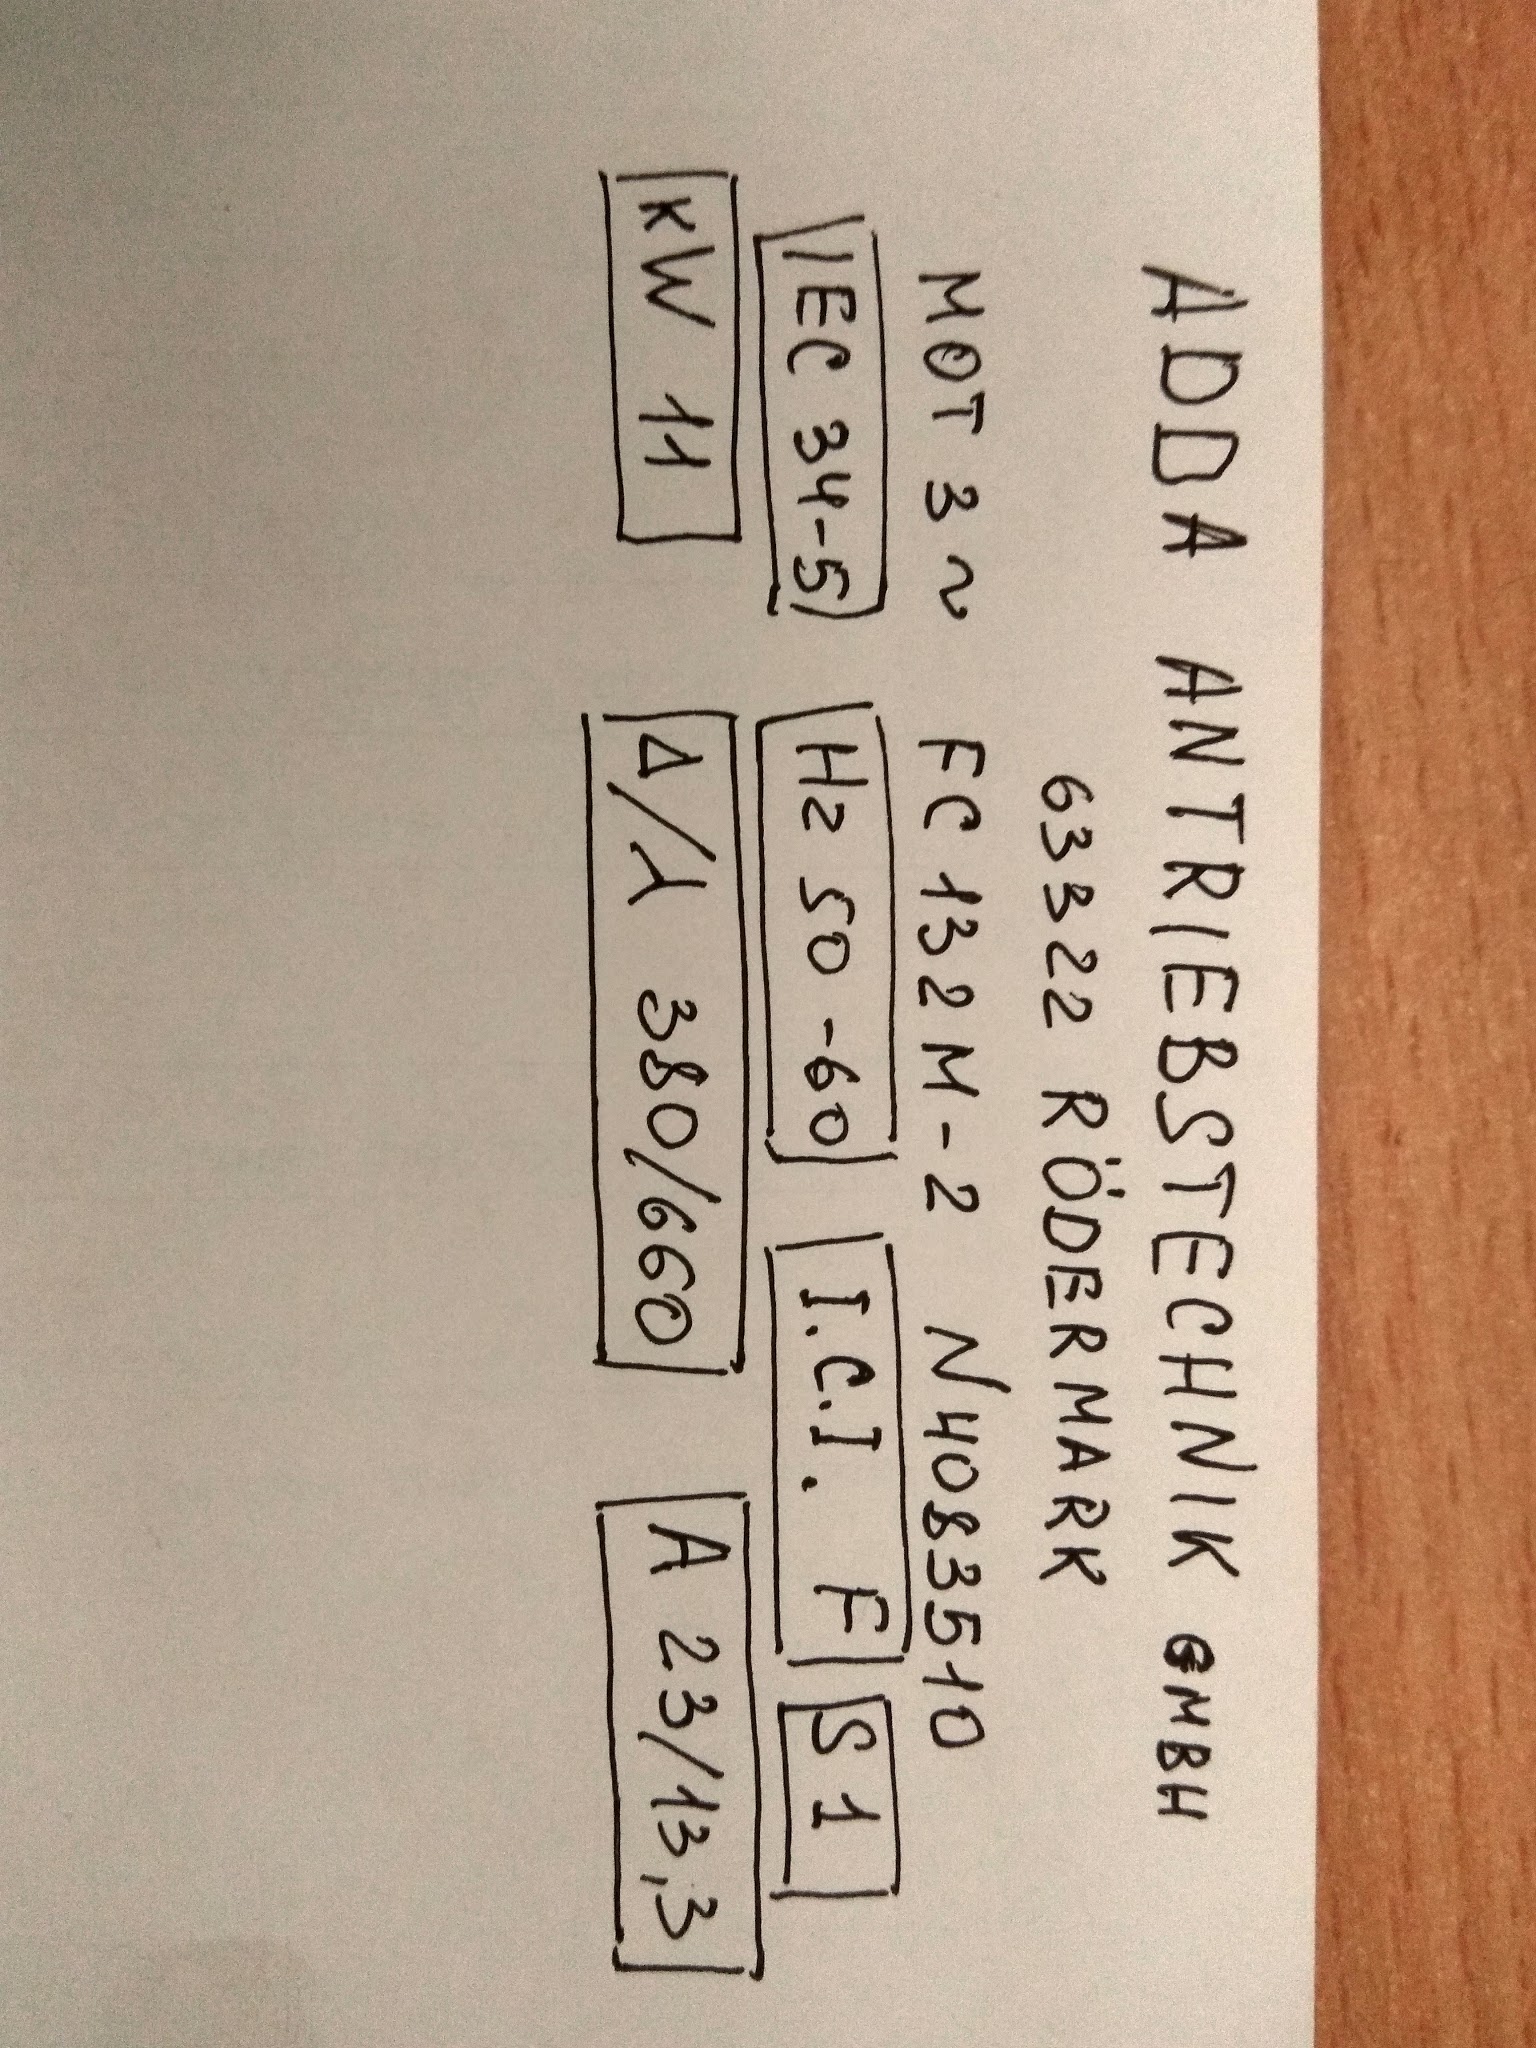 ADDA ANTRIEBSTECHNIK GMBH
63322 RÖDERMARK
MOT 3~ FC 132M-2 N4083510
IEC 34-5 Hz 50-60 I.C.I. F S1
kW 11 Δ/Y 380/660 A 23/13,3